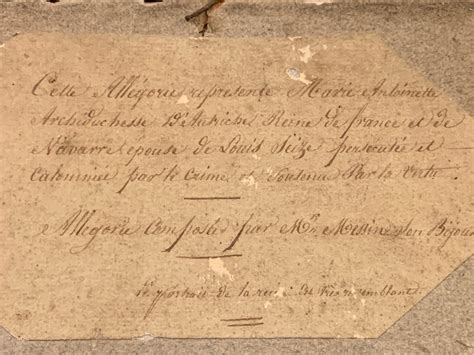 Cette Allégorie représente Marie Antoinette
Archiduchesse D'Autriche Reine de france et de
Navarre epouse de Louis Seize persecutée et
Calomniée par le Crime et Soutenue Par la Vertu
Allégorie Composée par Mr
Le portrait de la reine est très resemblant